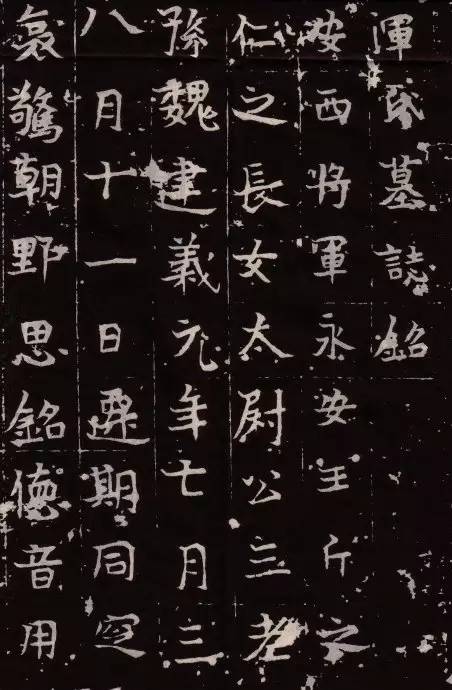 渾氏墓誌銘
安西將軍永安王斤之
仁之長女太尉公三老
孫魏建義元年七月三
八月十一日遷期同窆
哀驚朝野思銘德音用